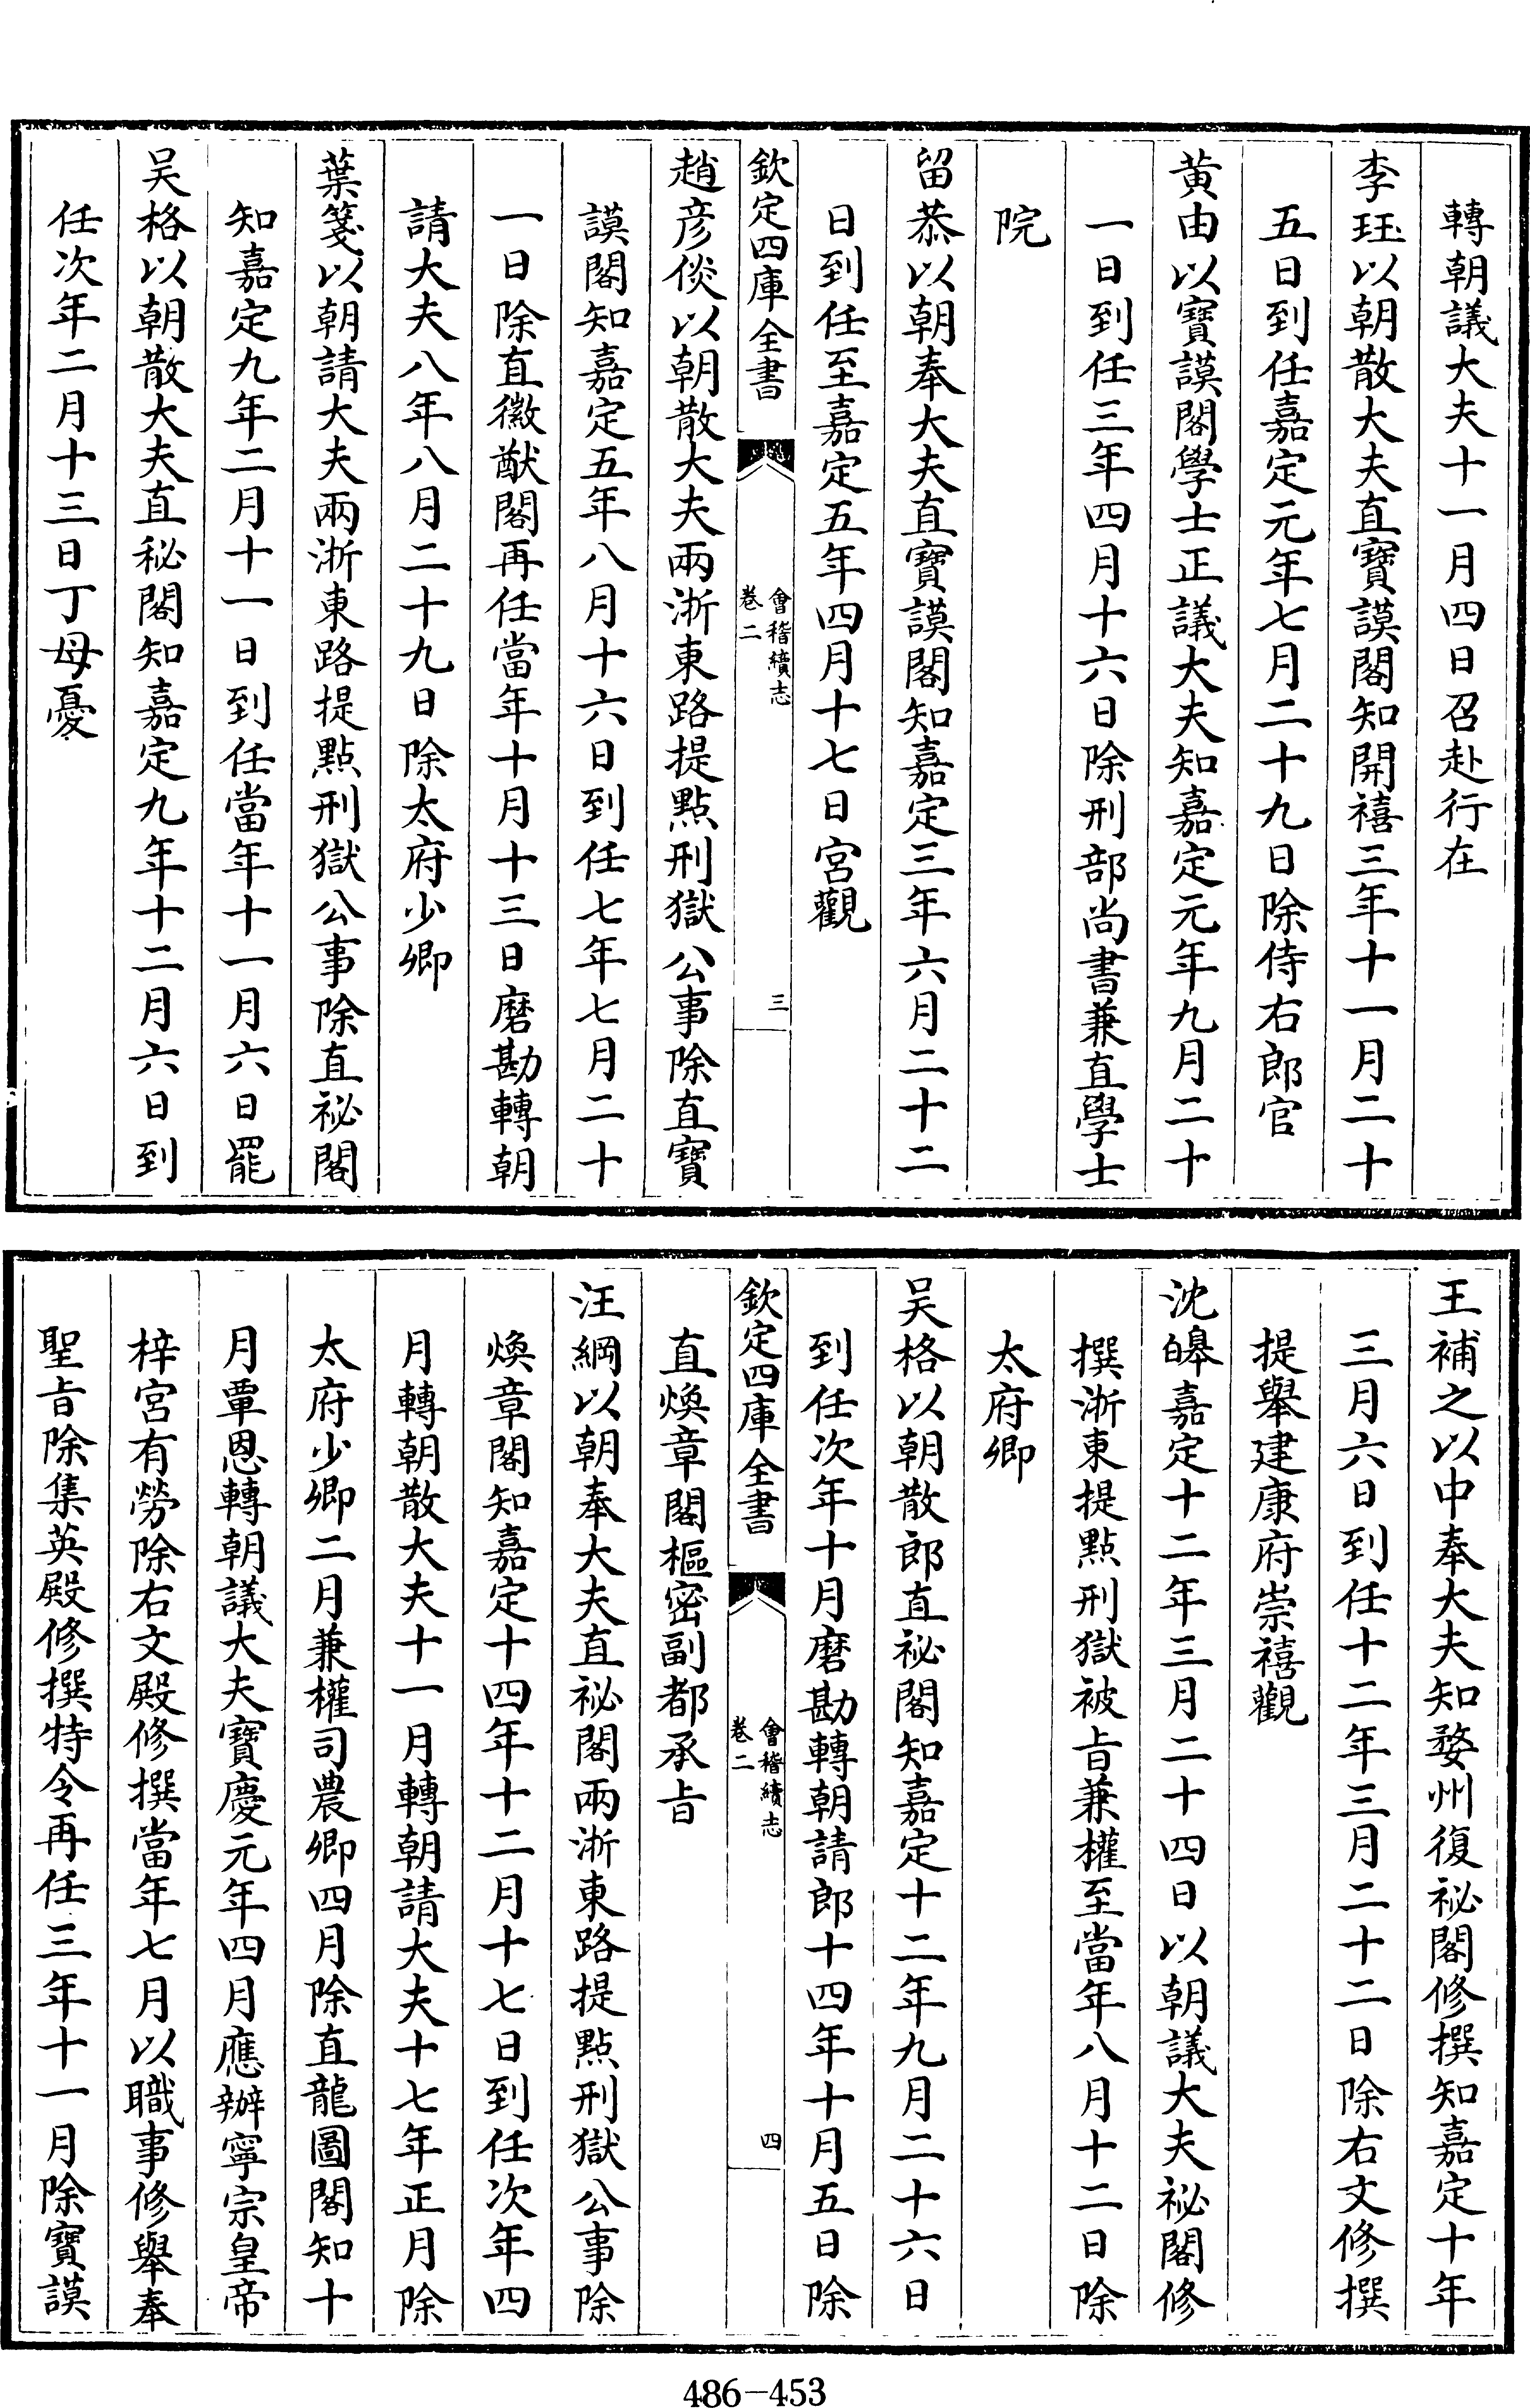 轉朝議大夫十一月四日召赴行在
李珏以朝散大夫直寶謨閣知開禧三年十一月二十
五日到任嘉定元年七月二十九日除侍右郎官
黄由以寶謨閣學士正議大夫知嘉定元年九月二十
一日到任三年四月十六日除刑部尚書兼直學士
院
留恭以朝奉大夫直寶謨閣知嘉定三年六月二十二
日到任至嘉定五年四月十七日宮觀
欽定四庫全書
會稽續志
卷二
三
趙彦倓以朝散大夫兩浙東路提點刑獄公事除直寶
謨閣知嘉定五年八月十六日到任七年七月二十
一日除直徽猷閣再任當年十月十三日磨勘轉朝
請大夫八年八月二十九日除太府少卿
葉箋以朝請大夫兩浙東路提點刑獄公事除直祕閣
知嘉定九年二月十一日到任當年十一月六日罷
吴格以朝散大夫直秘閣知嘉定九年十二月六日到
任次年二月十三日丁母憂
王補之以中奉大夫知婺州復祕閣修撰知嘉定十年
三月六日到任十二年三月二十二日除右文修撰
提舉建康府崇禧觀
沈皞嘉定十二年三月二十四日以朝議大夫祕閣修
撰浙東提點刑獄被㫖兼權至當年八月十二日除
太府卿
吴格以朝散郎直祕閣知嘉定十二年九月二十六日
到任次年十月磨勘轉朝請郎十四年十月五日除
欽定四庫全書
會稽續志
卷二
四
直煥章閣樞密副都承㫖
汪綱以朝奉大夫直祕閣兩浙東路提點刑獄公事除
煥章閣知嘉定十四年十二月十七日到任次年四
月轉朝散大夫十一月轉朝請大夫十七年正月除
太府少卿二月兼權司農卿四月除直龍圖閣知十
月覃恩轉朝議大夫寶慶元年四月應辦寧宗皇帝
梓宮有勞除右文殿修撰當年七月以職事修舉奉
聖㫖除集英殿修撰特令再任三年十一月除寶謨
486-453